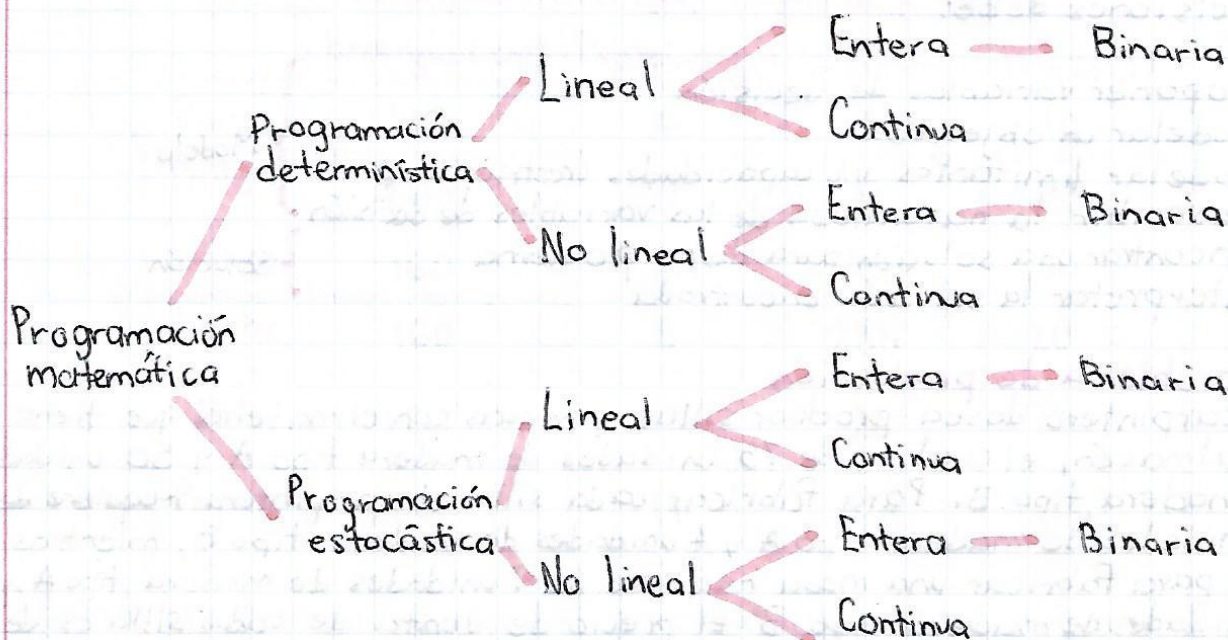 Programación
matemática
Programación
determinística
Lineal
Entera
Binaria
Continua
No lineal
Entera
Binaria
Continua
Programación
estocástica
Lineal
Entera
Binaria
Continua
No lineal
Entera
Binaria
Continua